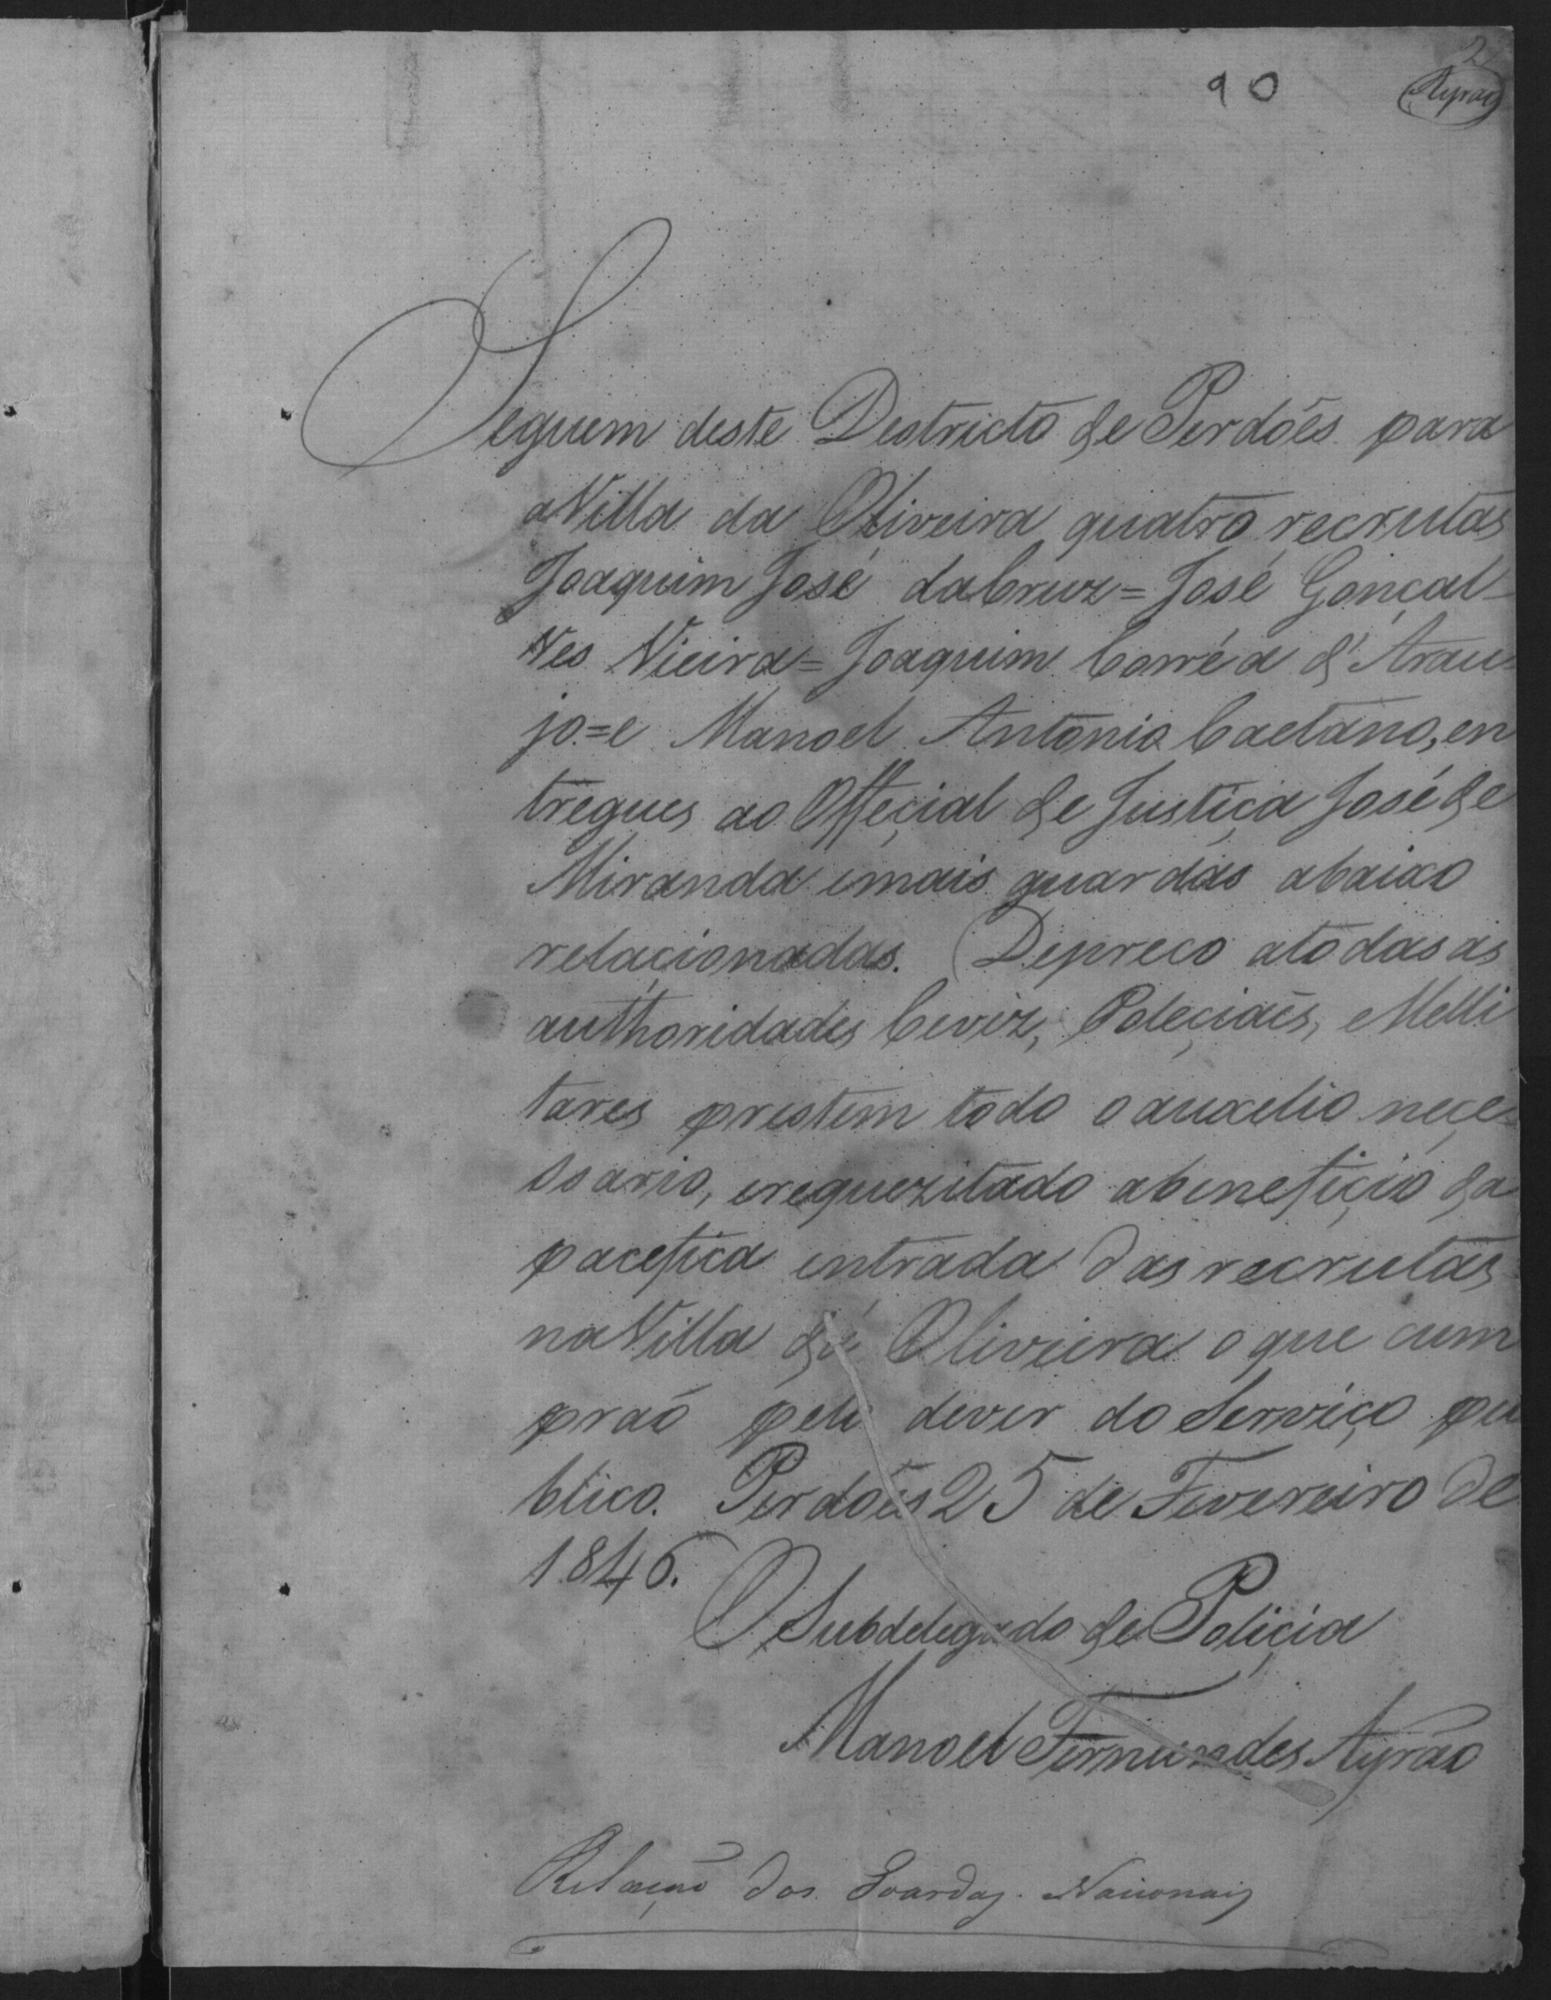 2
90
Ayrão
Seguem deste Destricto de Perdões para
a Villa da Oliveira quatro recrutas
Joaquim José da Cruz = José Gonçal-
ves Vieira = Joaquim Corrêa d'Arau-
jo = e Manoel Antonio Caetano, en
tregues ao Offeçial de Justiça José de
Miranda emais guardas abaixo
relaçionadas. Depreco atodas as
authoridades Civiz, Poleçiaes, e Melli
tares prestem todo o auxelio neçe-
ssario, erequezitado abenefiçio da
pacefica entrada das recrutas
na Villa de Oliveira o que cum
prão pelo dever do Serviço pu
blico. Perdões 25 de Fevereiro de
1846.
O Subdelegado de Poliçia
Manoel Fernandes Ayrão
Relação dos Goardas Nacionais